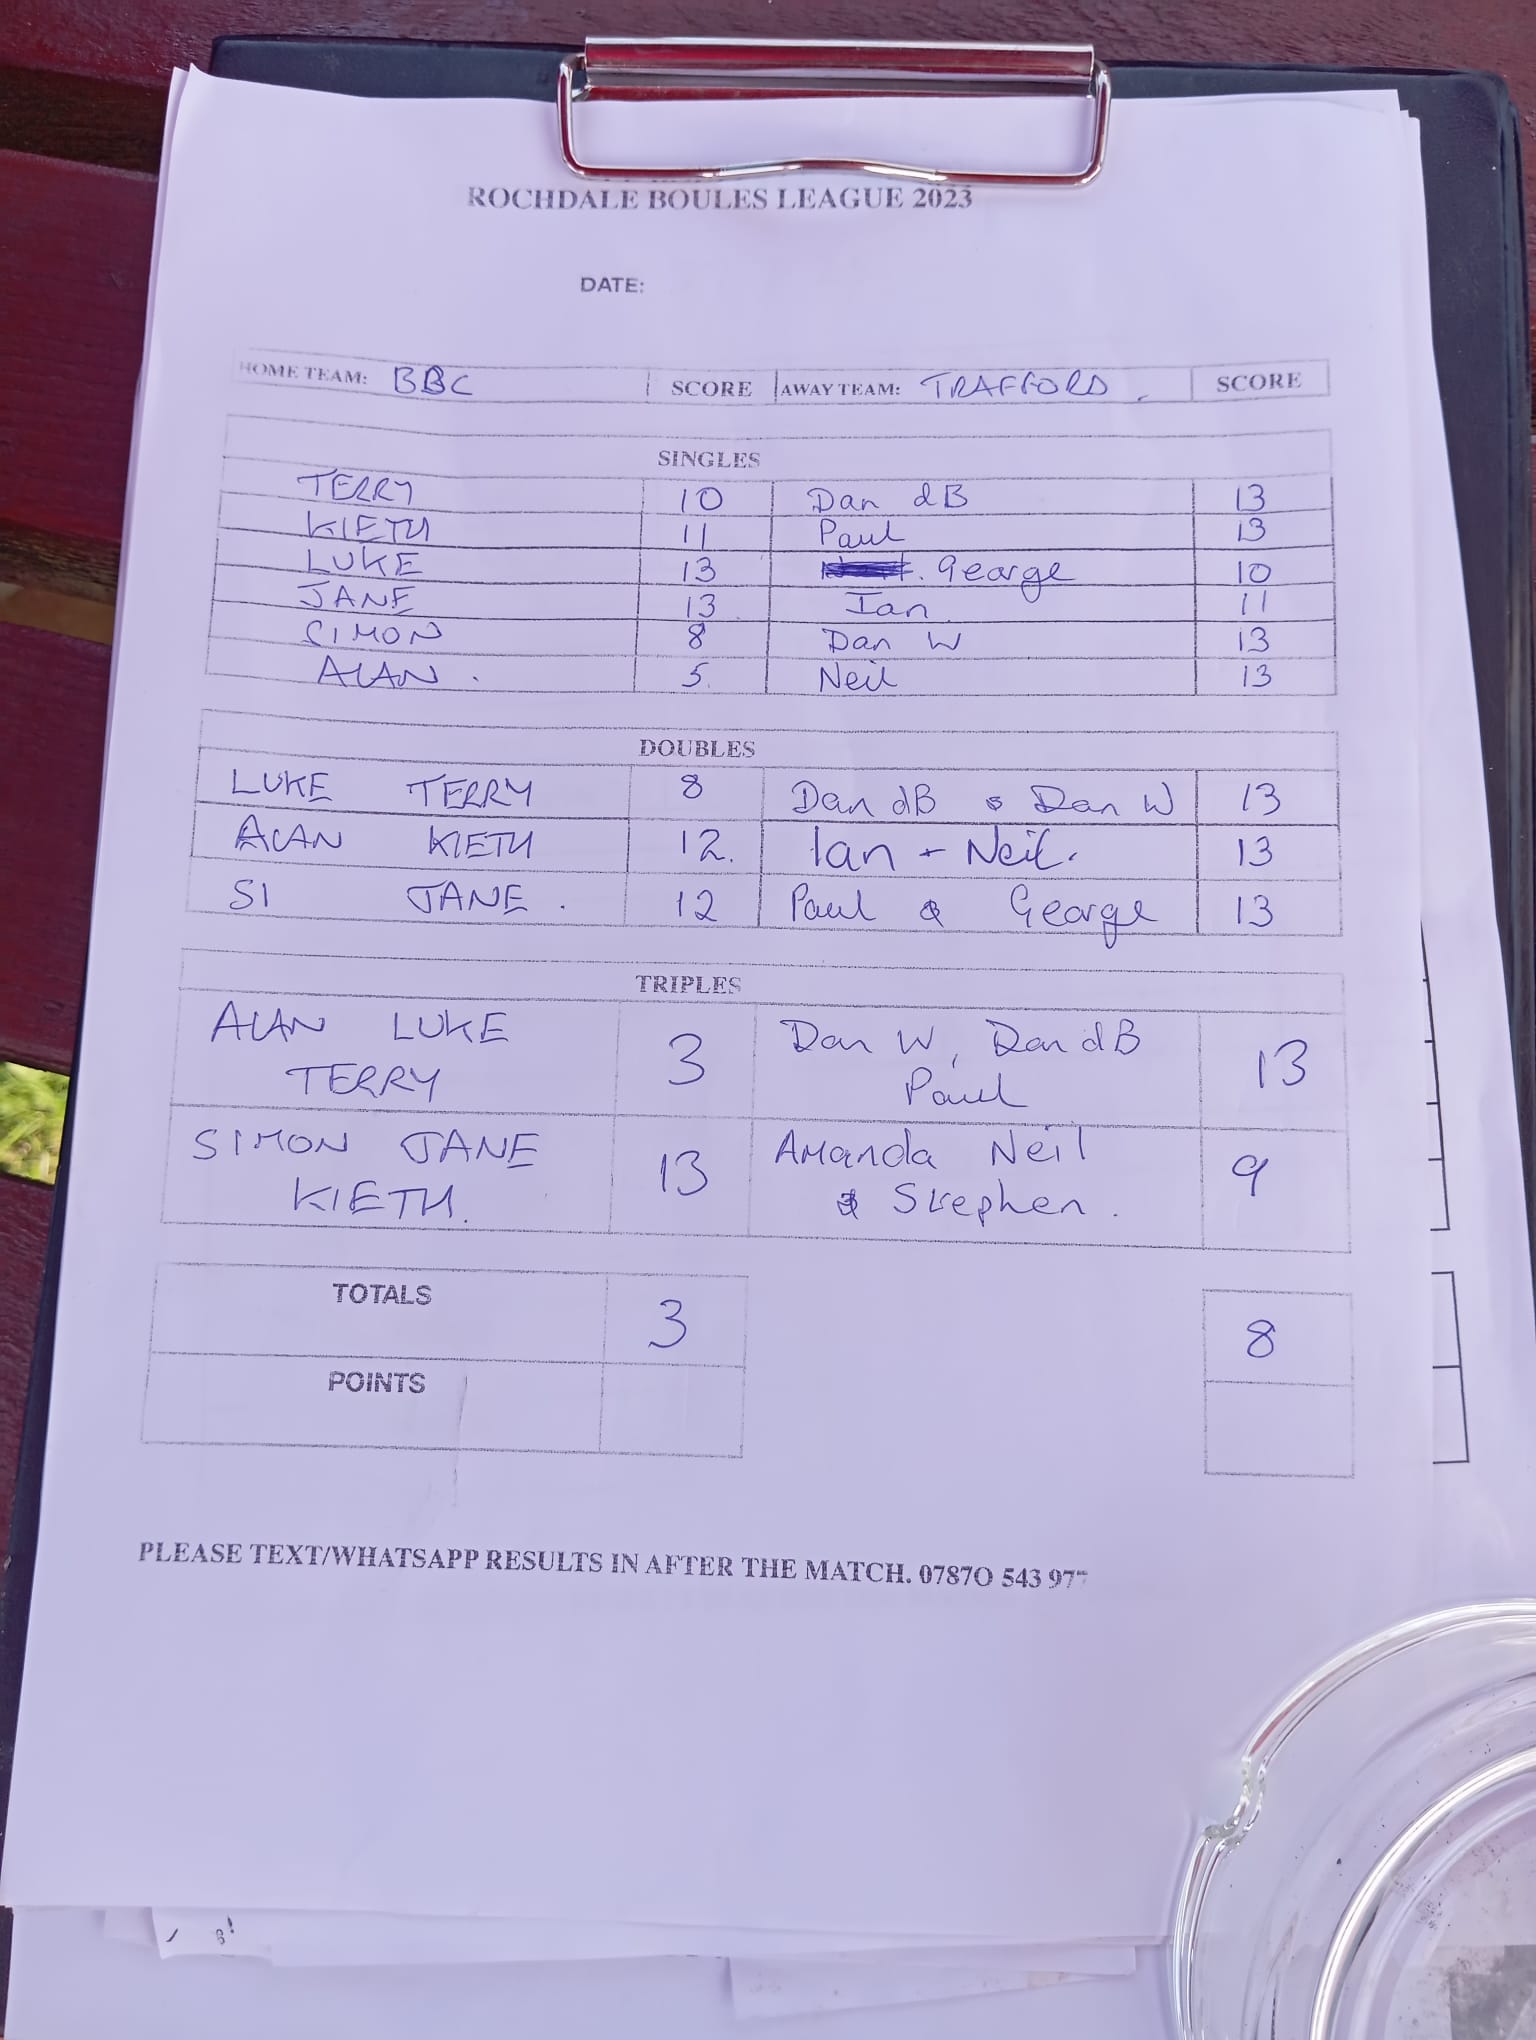 ROCHDALE BOULES LEAGUE 2023
DATE:
HOME TEAM: BBC SCORE AWAY TEAM: TRAFFORD. SCORE
SINGLES
TERRY 10 Dan dB 13
KIETH 11 Paul 13
LUKE 13 George 10
JANE 13 Ian 11
SIMON 8 Dan W 13
ALAN. 5. Neil 13
DOUBLES
LUKE TERRY 8 Dan dB & Dan W 13
ALAN KIETH 12. Ian + Neil. 13
SI JANE. 12 Paul & George 13
TRIPLES
ALAN LUKE 3 Dan W, Dan dB 13
TERRY Paul
SIMON JANE 13 Amanda Neil 9
KIETH. & Stephen.
TOTALS 3 8
POINTS
PLEASE TEXT/WHATSAPP RESULTS IN AFTER THE MATCH. 0787O 543